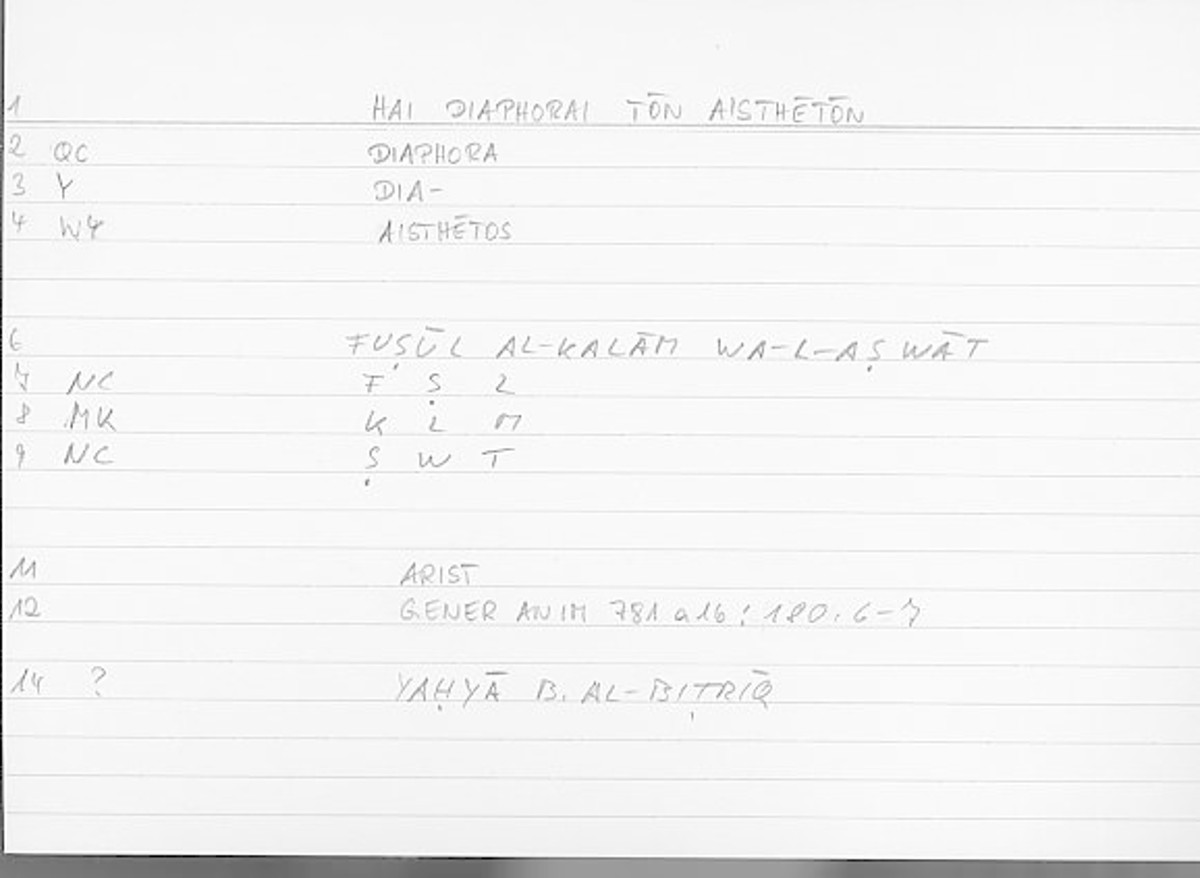 1 HAI DIAPHORAI TŌN AISTHĒTŌN
2 QC DIAPHORA
3 Y DIA-
4 W4 AISTHĒTOS
6 FUṢŪL AL-KALĀM WA-L-AṢWĀT
7 NC F Ṣ L
8 MK K L M
9 NC Ṣ W T
11 ARIST
12 GENER ANIM 781 a 16 : 180.6-7
14 ? YAḤYĀ B. AL-BIṬRĪQ